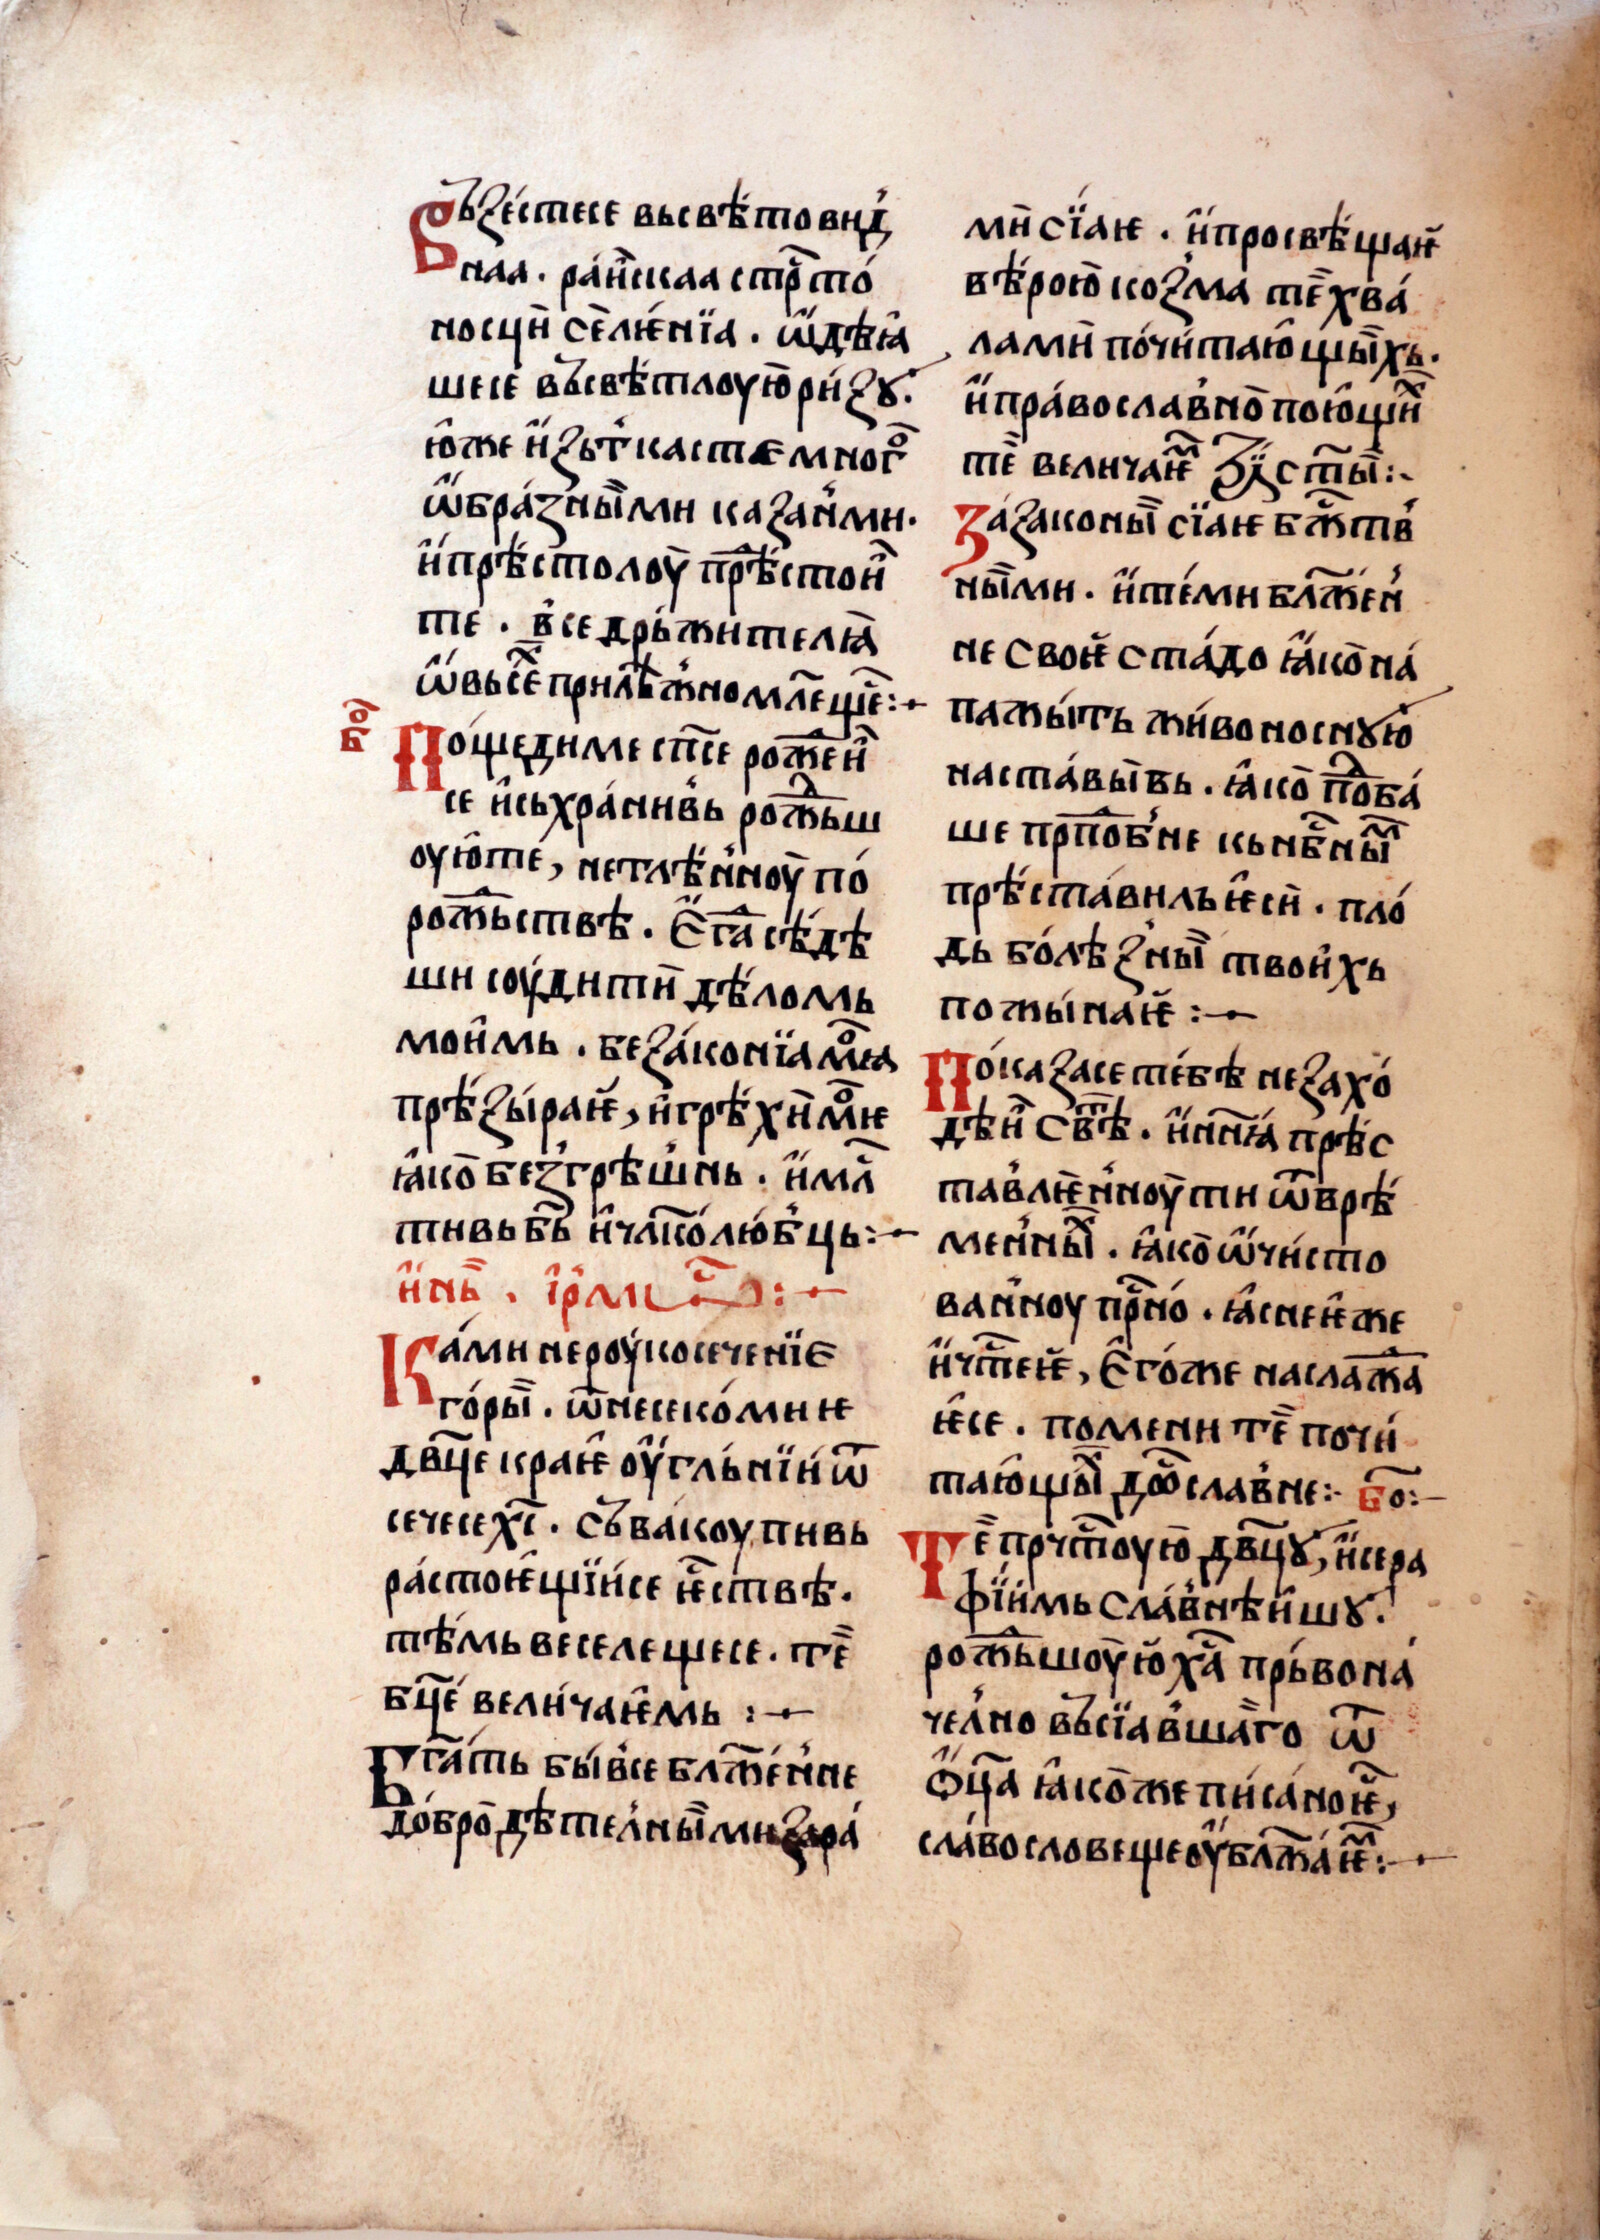 Възѥстесе вьсвѣтовид
наа. ра́искаа стрⷭ҇то́
носци сели́ѥнїа. ѡ҆дѣꙗ҆
шесе въсвѣтлоую ри́зꙋ.
ю҆же и҆зьткаст́е мног
ѡ҆бра́зныими каза́н́ми.
и҆ прѣ́столоу прⷣѣстои
те. в́се дрьжителꙗ
ѡ҆ вьсѣⷯ прилѣж́но млеще:~
бого
По́щедиме сп҃се рожⷣеи
се и҆сьхра́нив́ь рожⷣьш
оую҆те́, нетлѣ́н́ноу по́
рожⷣьствѣ. Е҆гда сѣ́дѣ
ши соу́дити дѣ́ломь
мои҆мь. беза́конїа моꙗ
прѣ́зы́раѥ, и҆грѣ́хи моѥ
ꙗ҆ко безгрѣш́нь. и҆ млⷭ҇
тивь бь҃ и҆ чл҃ко́лю́б́ць:~
и҆нь. і҆рмⷭ҇:~
Ка́ми нероу́косеченїе
го́ры. ѿ несеко́миѥ
дв҃це краѥ҆ оу҆гльнїи ѿ
сечесе хс҃. съвакоупивь
ра́стоѥ҆щїи́се ѥ҆ствѣ.
тѣ́мь веселещесе. те
бц҃е вели́чаѥ҆мь :~
Бг҃ать бы́в́се блаже́н́не
до́бро дѣтел́ныими зара́
ми сїаѥ. и҆ просвѣ́щаѥ
вѣ́рою козма те хва́
лами по́чи́таю҆щыихь.
и҆ пра́вославно пою҆щиⷯ
те величаѥⷨ зї сты:~
За́закони сїаѥ бж҃тв
ными. и҆ те́ми блаже́н
не своѥ ста́до ꙗ҆ко на́
пажы́ть жи́воносную
наста́вывь. ꙗ҆ко поⷣба́
ше прпⷣоб́не кьнбⷭ҇ныⷨ
прѣ́ста́виль ѥ҆си. пло́
дь бо́лѣз́ны твои́хь
пожы́наѥ :~
По́казасе те́бѣ незахо́
дѣи свⷮѣ. и҆ ннꙗ҃ прѣ́с
тав́лѥн́ноу ти ѿ врѣ́
мен́ныⷯ. ꙗ҆ко ѡ҆чи́сто
ван́ноу прⷭ҇но́. ꙗ҆снеѥ҆ же
и҆чⷭ҇теѥ, Е҆го́же наслажⷣа
ѥ҆се. помени те почи́
таю҆щыⷯ дѡ҆славне:~ бо:~
Те прчⷭ҇тоую дв҃цꙋ, и҆сера
фїимь сла́внѣишꙋ.
рожⷣьшоую ха҃ прь́вона́
чел́но въсїав́шаго ѿ
ѻ҆ц҃а ꙗ҆ко же писа́но ѥⷭ҇,
сла́вословеще оу҆блажа́ѥⷨ:~